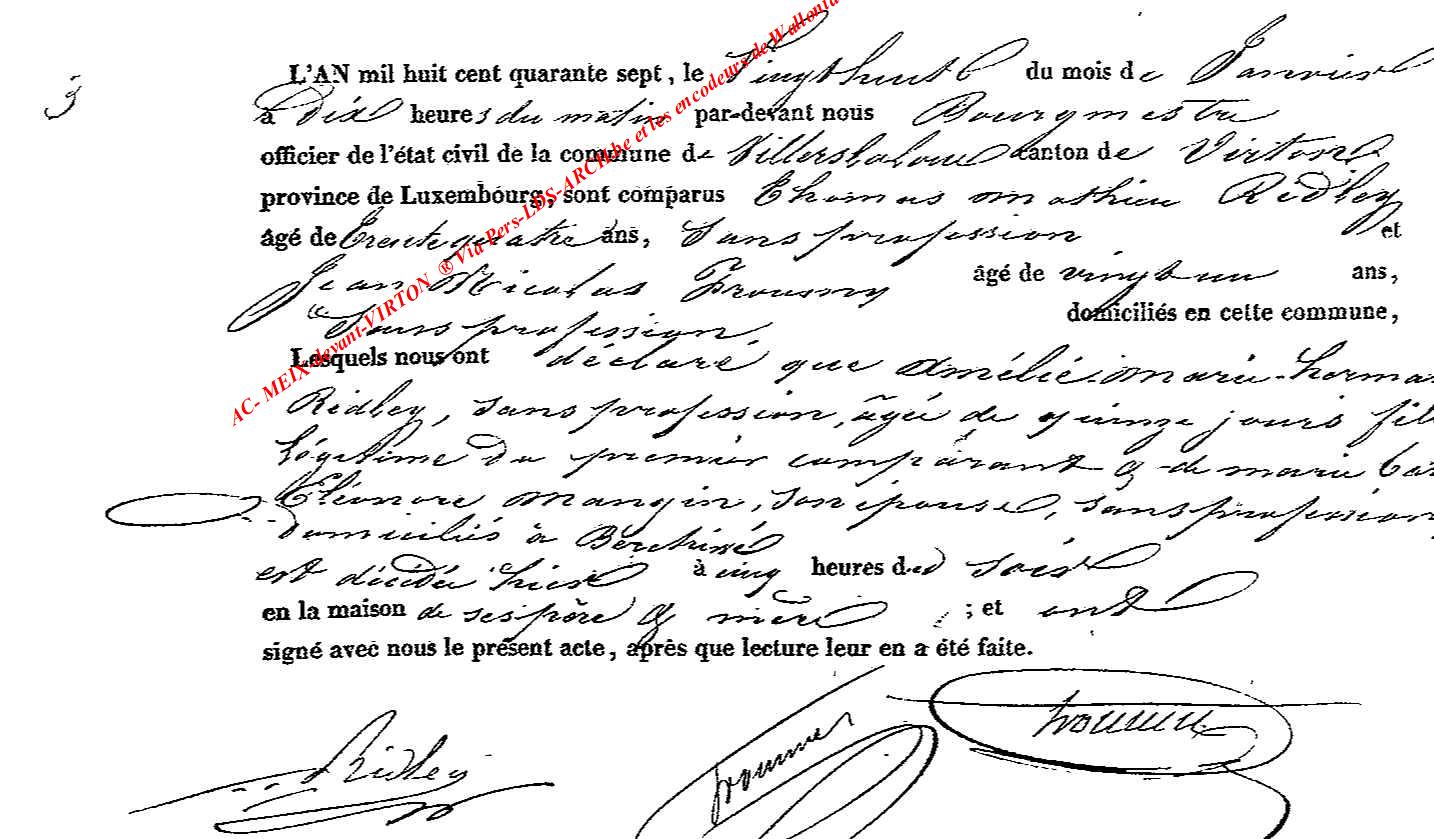 3
L'AN mil huit cent quarante sept, le Vingthuit du mois de Janvier
à dix heures du matin par-devant nous Bourgmestre
officier de l'état civil de la commune de Villerslaloue canton de Virton
province de Luxembourg, sont comparus Thomas mathieu Ridley
âgé de trente quatre ans, Sans profession et
Jean Nicolas âgé de vingt un ans,
Sans profession, domiciliés en cette commune,
Lesquels nous ont déclaré que Amélie-marie-herman
Ridley, sans profession, âgée de quinze jours fill
légitime du premier comparant & de marie
Eléonore Mangin, son épouse, sans profession
domiciliés à
est décédée hier à cinq heures du soir
en la maison de ses père & mère ; et ont
signé avec nous le présent acte, après que lecture leur en a été faite.
Ridley
AC- MEIX-devant-VIRTON ® Via Pers-LDS-ARCH.be et les encodeurs de Wallonie